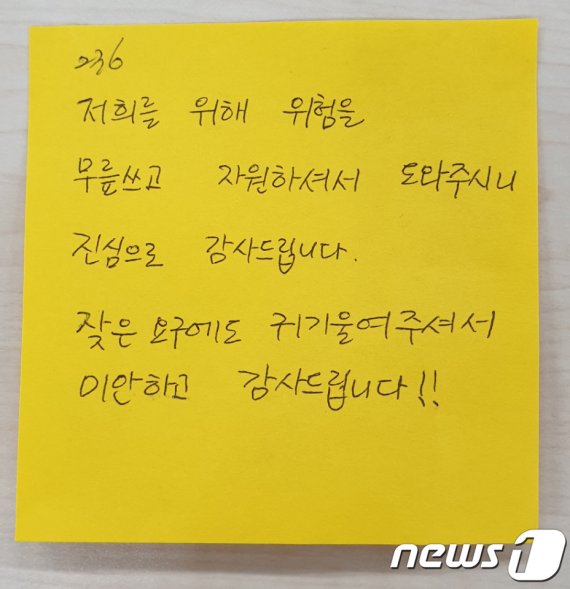 236
저희를 위해 위험을
무릎쓰고 자원하셔서 도와주시니
진심으로 감사드립니다.
잦은 요구에도 귀기울여주셔서
미안하고 감사드립니다!!
news1